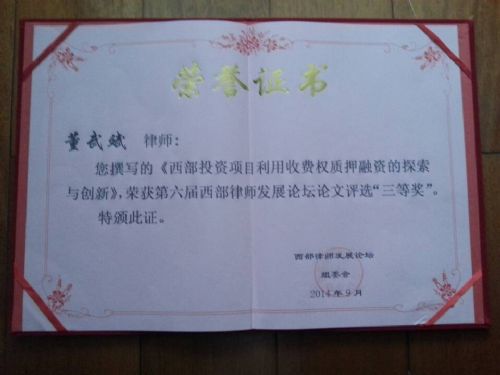 荣誉证书
董武斌 律师:
您撰写的《西部投资项目利用收费权质押融资的探索
与创新》,荣获第六届西部律师发展论坛论文评选“三等奖”。
特颁此证。
西部律师发展论坛
组委会
2014年9月